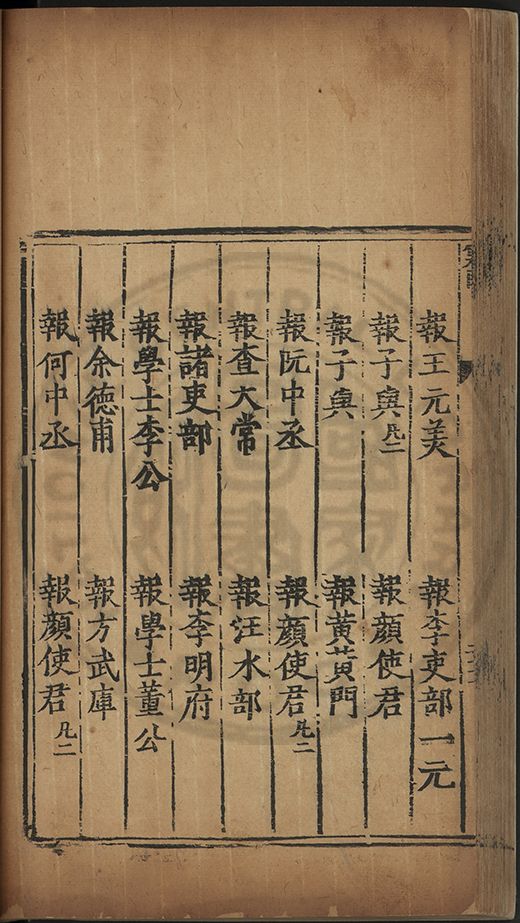 報王元美 報李吏部一元
報子與凡二 報顏使君
報子與 報黃黃門
報阮中丞 報顏使君凡二
報查太常 報汪水部
報諸吏部 報李明府
報學士李公 報學士董公
報余德甫 報方武庫
報何中丞 報顏使君凡二